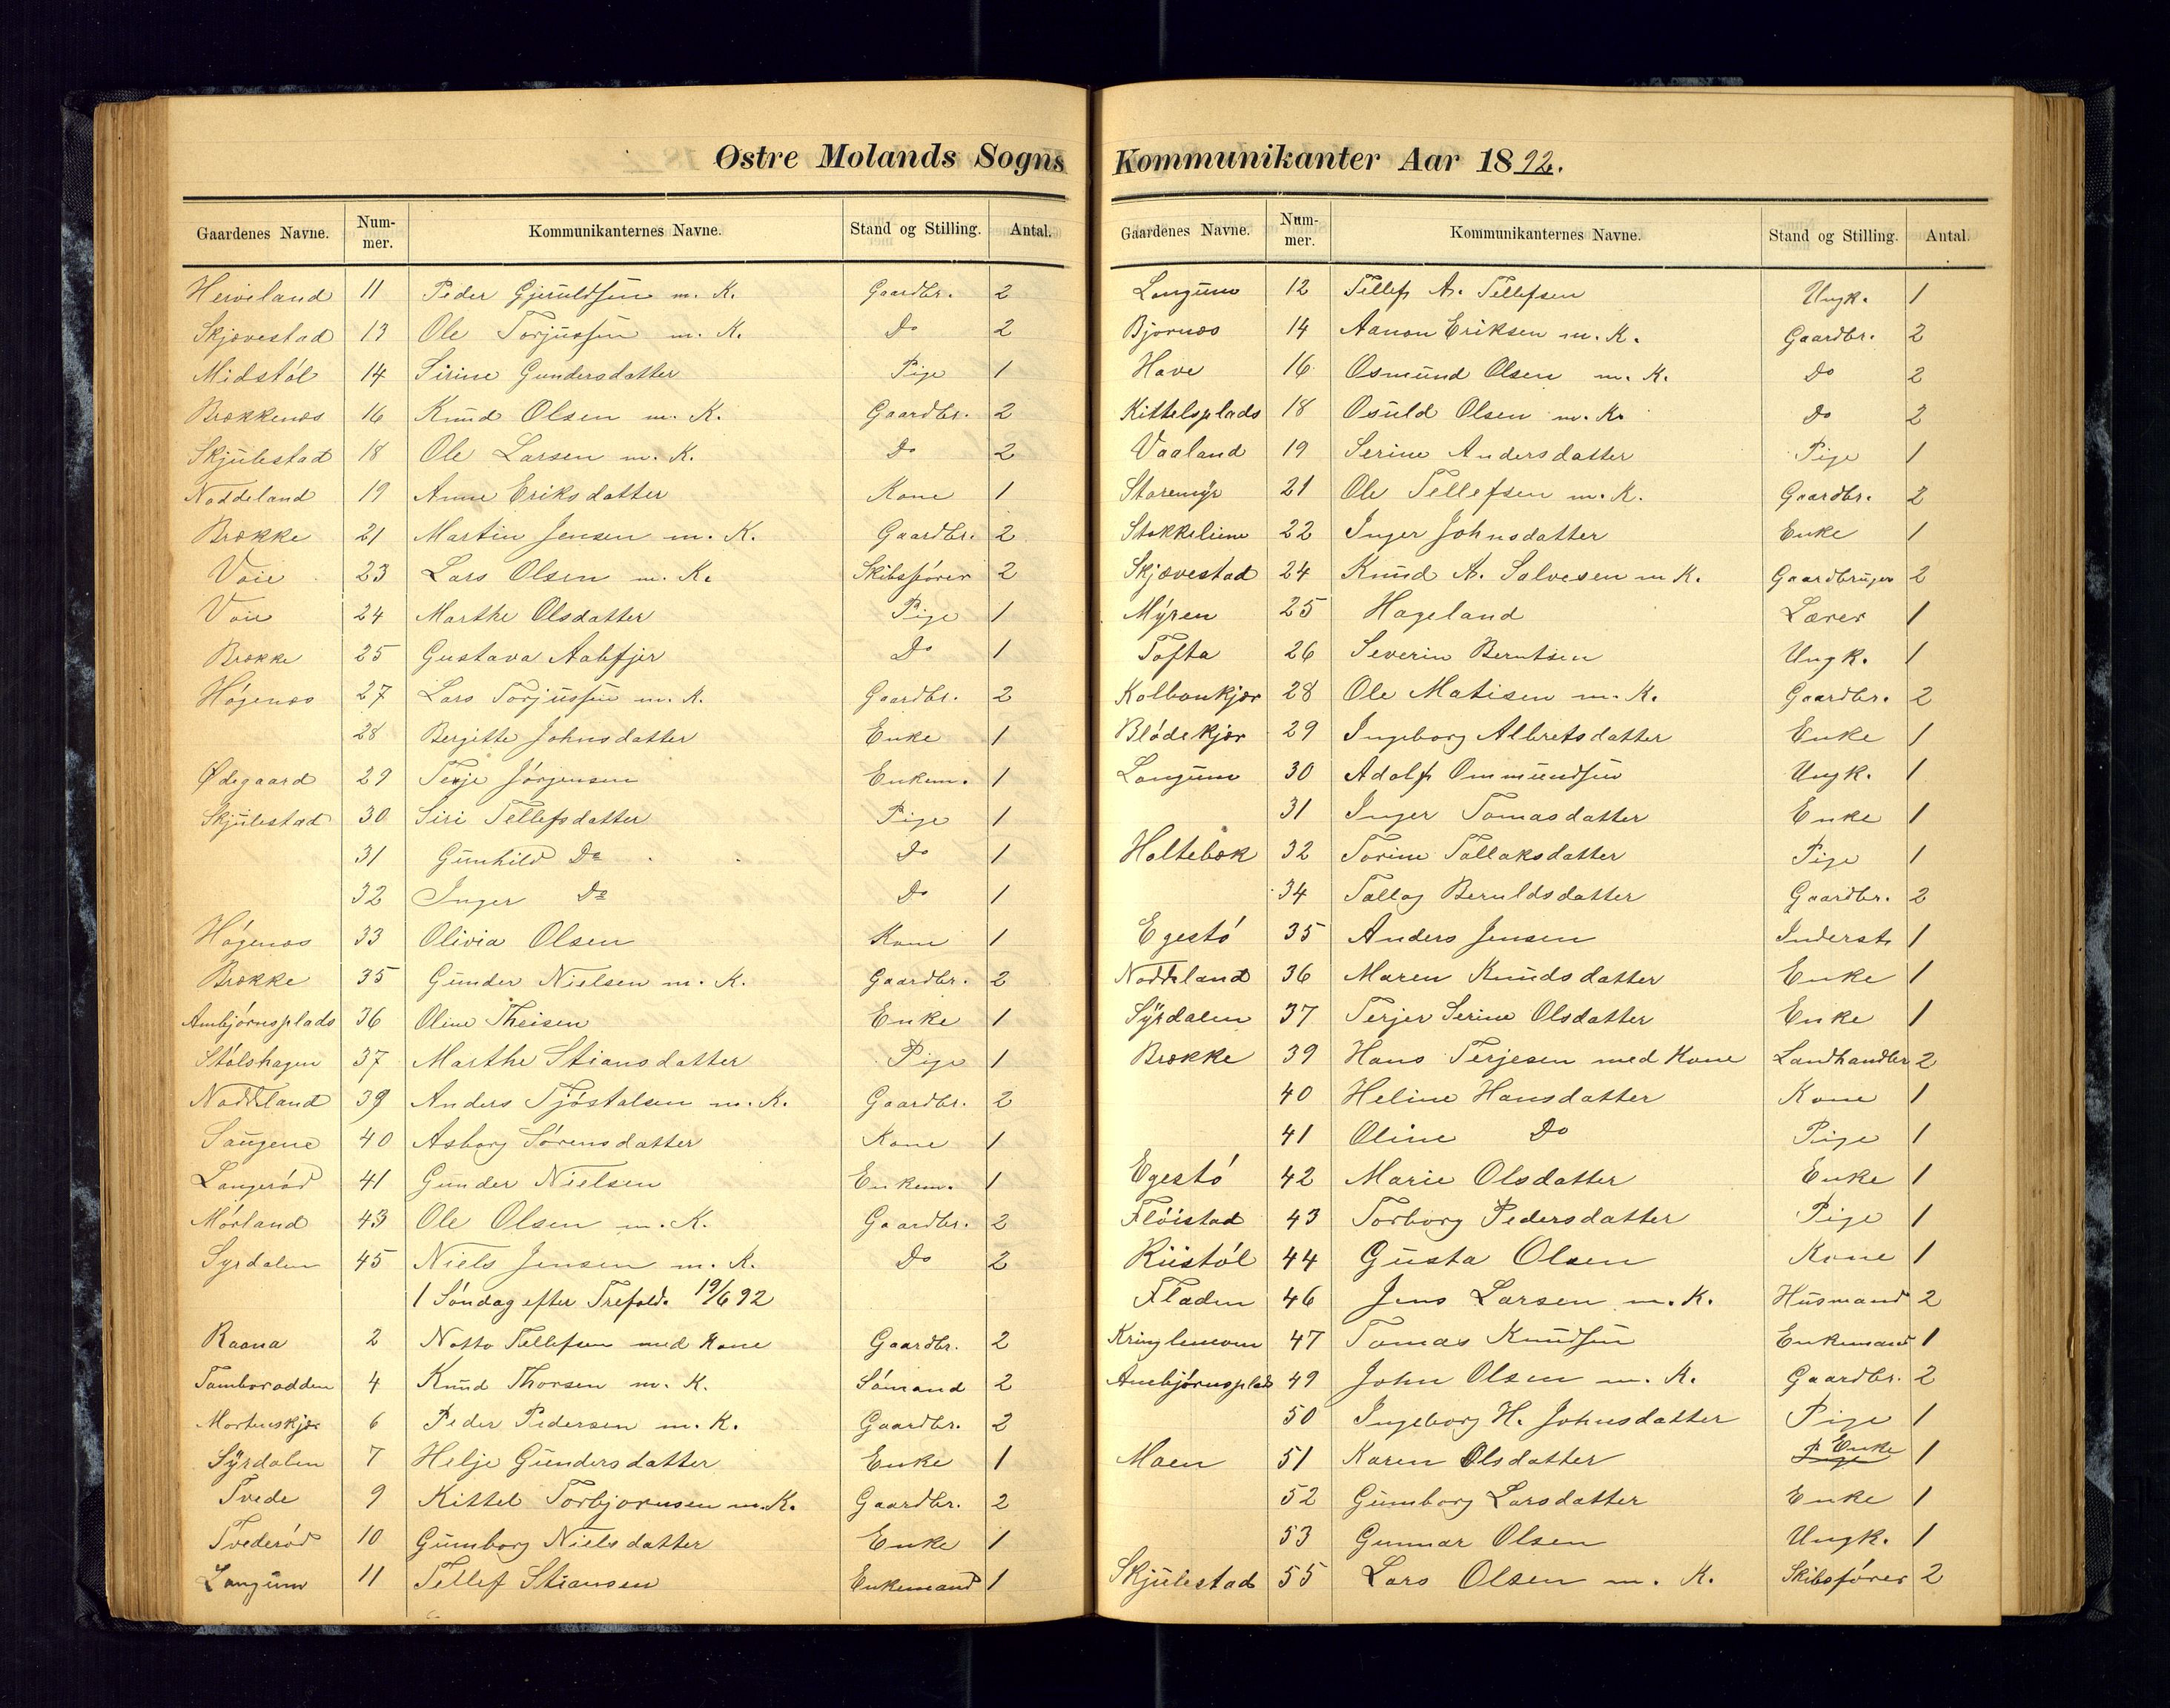 Østre Molands Sogns
Gaardenes Navne. Nummer. Kommunikanternes Navne. Stand og Stilling. Antal.
Herveland 11 Peder Gjeruldsen m. K. Gaardbr. 2
Skjævestad 13 Ole Torjussen m. K. Do 2
Midstøl 14 Sirine Gundersdatter Pige 1
Brækkenæs 16 Knud Olsen m. K. Gaardbr. 2
Skjulestad 18 Ole Larsen m. K. Do 2
Noddeland 19 Anne Eriksdatter Kone 1
Brække 21 Martin Jensen m. K. Gaardbr. 2
Voie 23 Lars Olsen m. K. Skibsfører 2
Voie 24 Marthe Olsdatter Pige 1
Brække 25 Gustava Aalefjer Do 1
Høgenæs 27 Lars Torjussen m. K. Gaardbr. 2
28 Bergitte Johnsdatter Enke 1
Ødegaard 29 Terje Jørgensen Enkem. 1
Skjulestad 30 Siri Tellefsdatter Pige 1
31 Gunhild Do Do 1
32 Inger Do Do 1
Høgenæs 33 Olivia Olsen Kone 1
Brække 35 Gunder Nielsen m. K. Gaardbr. 2
Ambjørnsplads 36 Oline Theisen Enke 1
Stølshagen 37 Marthe Stiansdatter Pige 1
Noddeland 39 Anders Tjøstalsen m. K. Gaardbr. 2
Saugene 40 Asborg Sørensdatter Kone 1
Langerød 41 Gunder Nielsen Enkem. 1
Mørland 43 Ole Olsen m. K. Gaardbr. 2
Syrdalen 45 Niels Jensen m. K. Do 2
1 Søndag efter Trefold. 19/6 92
Raana 2 Notto Tellefsen med Kone Gaardbr. 2
Tamborodden 4 Knud Thorsen m. K. Sømand 2
Mortenskjær 6 Peder Pedersen m. K. Gaardbr. 2
Syrdalen 7 Helje Gundersdatter Enke 1
Tvede 9 Kittel Torbjørnsen m. K. Gaardbr. 2
Tvederød 10 Gumborg Nielsdatter Enke 1
Longum 11 Tellef Stiansen Enkemand 1
Kommunikanter Aar 1892.
Gaardenes Navne. Nummer. Kommunikanternes Navne. Stand og Stilling. Antal.
Longum 12 Tellef A. Tellefsen Ungk. 1
Bjornæs 14 Aanon Eriksen m. K. Gaardbr. 2
Have 16 Osmund Olsen m. K. Do 2
Kittelsplads 18 Osuld Olsen m. K. Do 2
Vaaland 19 Serine Andersdatter Pige 1
Storemyr 21 Ole Tellefsen m. K. Gaardbr. 2
Stokkeliene 22 Inger Johnsdatter Enke 1
Skjævestad 24 Knud A. Salvesen m K. Gaardbruger 2
Myren 25 Hageland Lærer 1
Tofta 26 Severin Berntsen Ungk. 1
Kolbonkjær 28 Ole Matisen m. K. Gaardbr. 2
Blødekjær 29 Ingeborg Albretsdatter Enke 1
Longum 30 Adolf Ommundsen Ungk. 1
31 Inger Tomasdatter Enke 1
Holtebæk 32 Torine Tallaksdatter Pige 1
34 Tallag Beruldsdatter Gaardbr. 2
Egestø 35 Anders Jensen Inderst 1
Noddeland 36 Maren Knudsdatter Enke 1
Syrdalen 37 Terjer Serine Olsdatter Enke 1
Brække 39 Hans Terjesen med Kone Landhandler 2
40 Heline Hansdatter Kone 1
41 Oline Do Pige 1
Egestø 42 Marie Olsdatter Enke 1
Fløistad 43 Torborg Pedersdatter Pige 1
Riistøl 44 Gusta Olsen Kone 1
Fladen 46 Jens Larsen m. K. Husmand 2
47 Tomas Knudsen Enkemand 1
Ambjørnsplads 49 John Olsen m. K. Gaardbr. 2
50 Ingeborg H. Johnsdatter Pige 1
Moen 51 Karen Olsdatter Pige Enke 1
52 Gumborg Larsdatter Enke 1
53 Gunnar Olsen Ungk. 1
Skjulestad 55 Lars Olsen m. K. Skibsfører 2